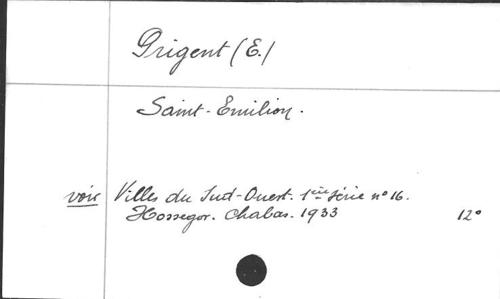 Prigent (E.)
Saint-Emilion.
voir Villes du Sud-Ouest. 1ère série n° 16.
Hossegor. Chabas. 1933 12°